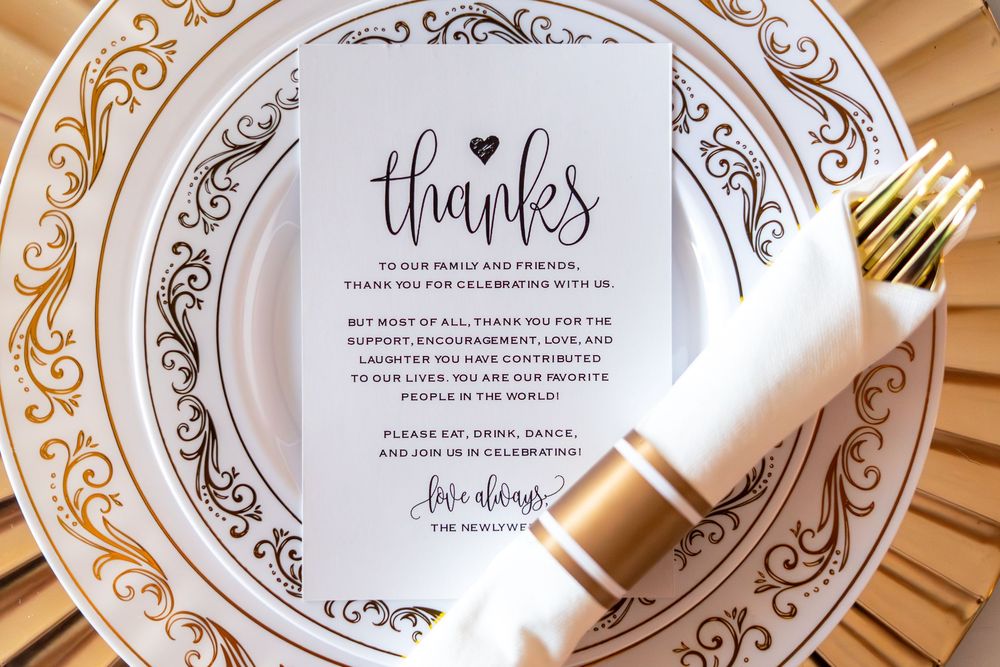 thanks
TO OUR FAMILY AND FRIENDS,
THANK YOU FOR CELEBRATING WITH US.
BUT MOST OF ALL, THANK YOU FOR THE
SUPPORT, ENCOURAGEMENT, LOVE, AND
LAUGHTER YOU HAVE CONTRIBUTED
TO OUR LIVES. YOU ARE OUR FAVORITE
PEOPLE IN THE WORLD!
PLEASE EAT, DRINK, DANCE,
AND JOIN US IN CELEBRATING!
love always,
THE